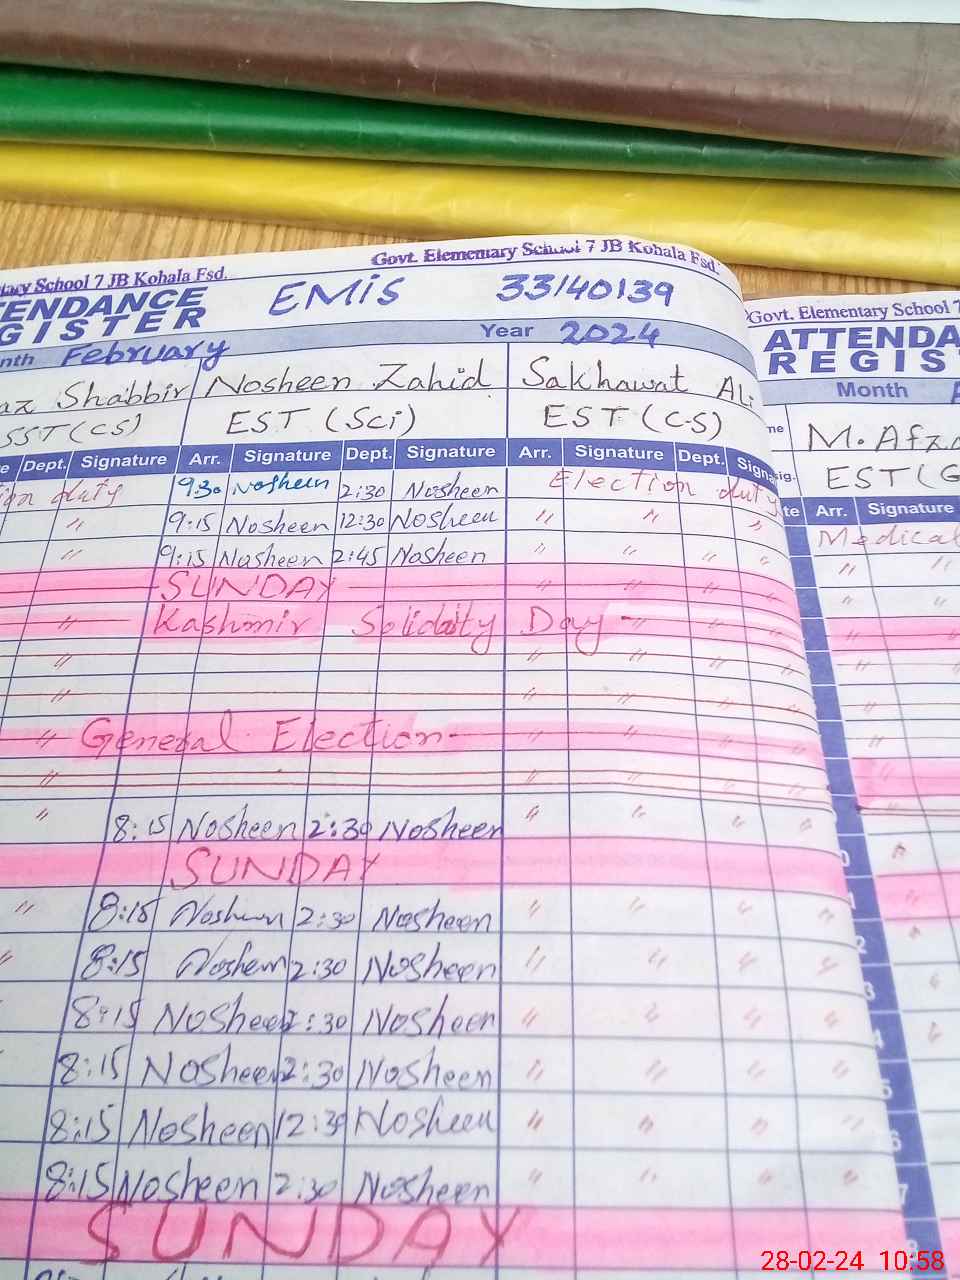 Govt. Elementary School 7 JB Kohala Fsd.
School 7 JB Kohala Fsd.
EMIS 33140139
TENDANCE
GISTER
nth February Year 2024
az Shabbir Nosheen Zahid Sakhawat Ali
SST (CS) EST (Sci) EST (C-S)
Dept. Signature Arr. Signature Dept. Signature Arr. Signature Dept. Signa
duty 9:30 Nosheen 2:30 Nosheen Election duty
" 9:15 Nosheen 12:30 Nosheen " " "
" 9:15 Nosheen 2:45 Nosheen " " " "
SUNDAY " " " "
" Kashmir Solidaity Day " " "
" " " " "
" " " " "
" General Election " " " "
" " " " "
" 8:15 Nosheen 2:30 Nosheen " " " "
SUNDAY
" 8:15 Nosheen 2:30 Nosheen " " " "
" 8:15 Nosheen 2:30 Nosheen " " " "
8:15 Nosheen 2:30 Nosheen " " " "
8:15 Nosheen 2:30 Nosheen " " " "
8:15 Nosheen 12:30 Nosheen " " " "
8:15 Nosheen 2:30 Nosheen " " " "
SUNDAY
Govt. Elementary School 7
ATTENDA
REGIS
Month
M. Afz
EST (G
Arr. Signature
Medical
" "
" "
28-02-24 10:58